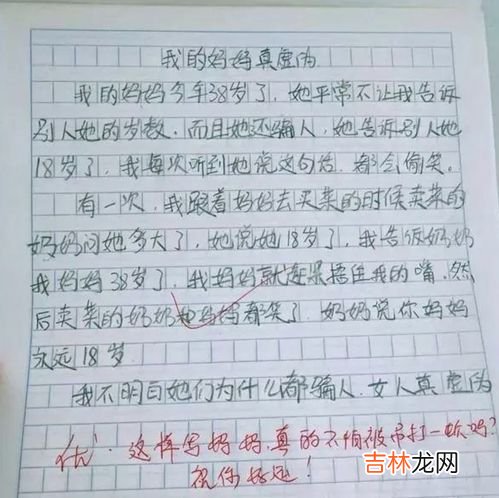 我的妈妈真虚伪
我的妈妈今年38岁了,她平常不让我告诉
别人她的岁数.而且她还骗人,她告诉别人她
18岁了,我每次听到她说这句话.都会偷笑。
有一次,我跟着妈妈去买菜的时候卖菜的
奶奶问她多大了,她说她18岁了,我告诉奶奶
我妈妈38岁了,我妈妈就赶紧捂住我的嘴.然
后卖菜的奶奶和妈妈都笑了.奶奶说你妈妈
永远18岁
我不明白她们为什么都骗人.女人真虚伪
优.这样写妈妈.真的不怕被吊打一顿吗?
祝你好运!
吉林龙网